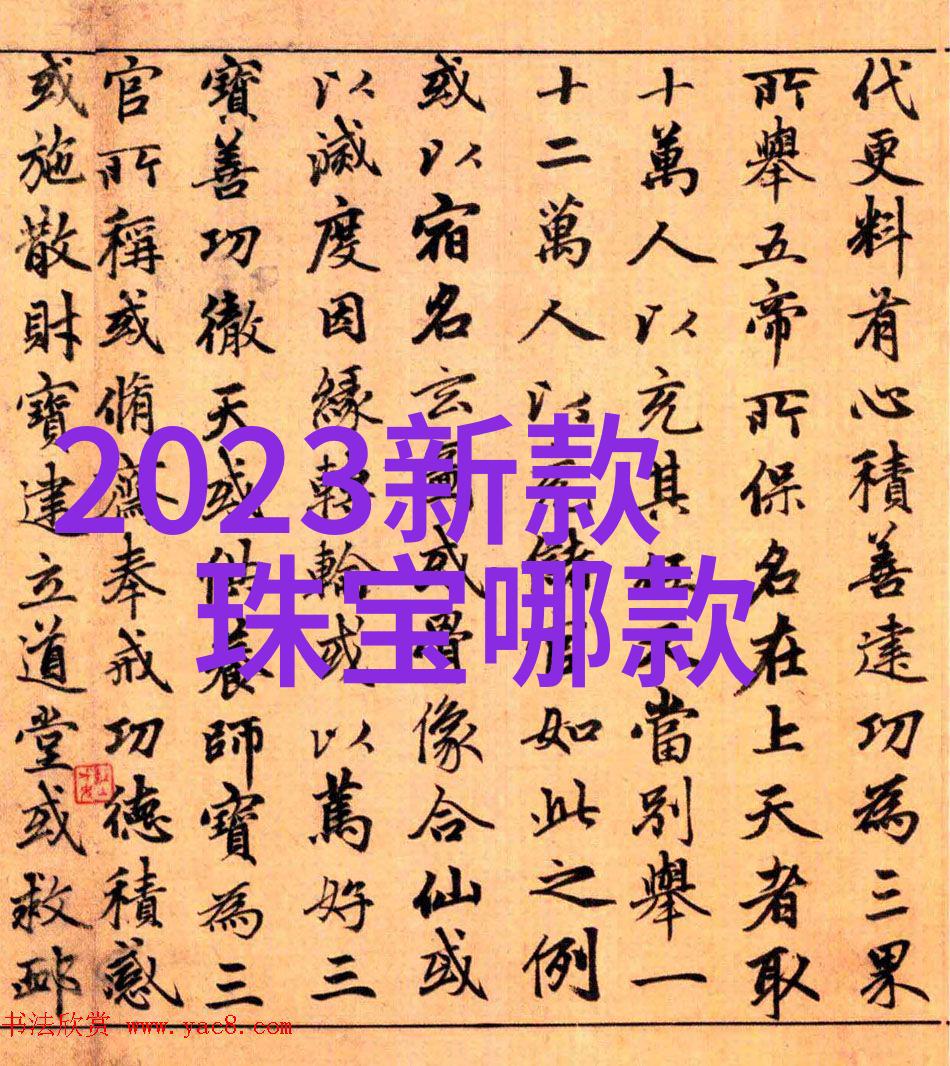 代更料有心積善建功為三果
所舉五帝所保名在上天者取
十萬人以充其當別舉一
十二萬人以儲如此之例
或以宿名玄圖或骨像合仙或
以滅度因緣轉輪或以篤好三
寶善功徹天或供養師寶為三
官所稱或脩齋奉戒功德積感
或施散財寶建立道堂或救卹
2023新款
珠宝哪款
书法欣赏 www.yac8.com